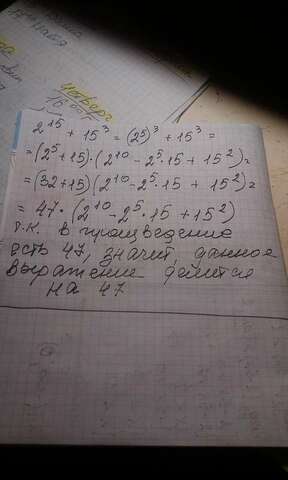 четверг
2¹⁵ + 15³ = (2⁵)³ + 15³ =
= (2⁵ + 15) · (2¹⁰ - 2⁵ · 15 + 15²) =
= (32 + 15) (2¹⁰ - 2⁵ · 15 + 15²) =
= 47 · (2¹⁰ - 2⁵ · 15 + 15²)
т.к. в произведение
есть 47, значит, данное
выражение делится
на 47